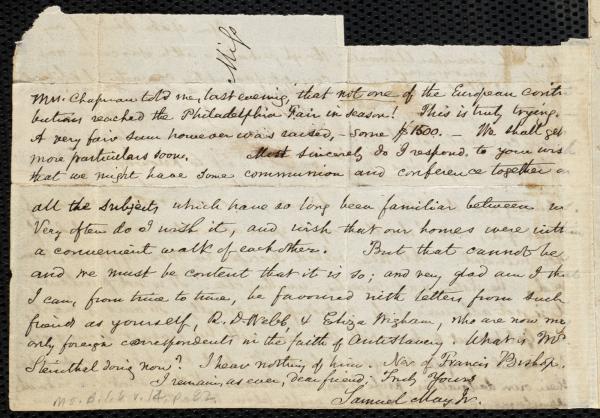 Miss
Mrs. Chapman told me, last evening, that not one of the European contri
butions reached the Philadelphia Fair in season! This is truly trying.
A very fair sum however was raised, - some $1500. - We shall get
more particulars soon. Most sincerely do I respond, to your wish
that we might have some communion and conference together on
all the subjects which have so long been familiar between us
Very often do I wish it, and wish that our homes were with
a convenient walk of each other. But that cannot be
and we must be content that it is so; and very glad am I that
I can, from time to time, be favoured with letters from such
friends as yourself, R. D. Webb, & Eliza Wigham, who are now my
only foreign correspondents in the faith of Antislavery. What is Mr
Steinthal doing now? I hear nothing of him. Nor of Francis Bishop.
I remain, as ever, dear friend, Truly Yours
Samuel May Jr.
Ms. B. 1. 6 v. 14, p. 82